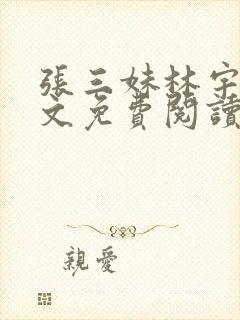 張三妹林宇
文免費閱讀
親愛